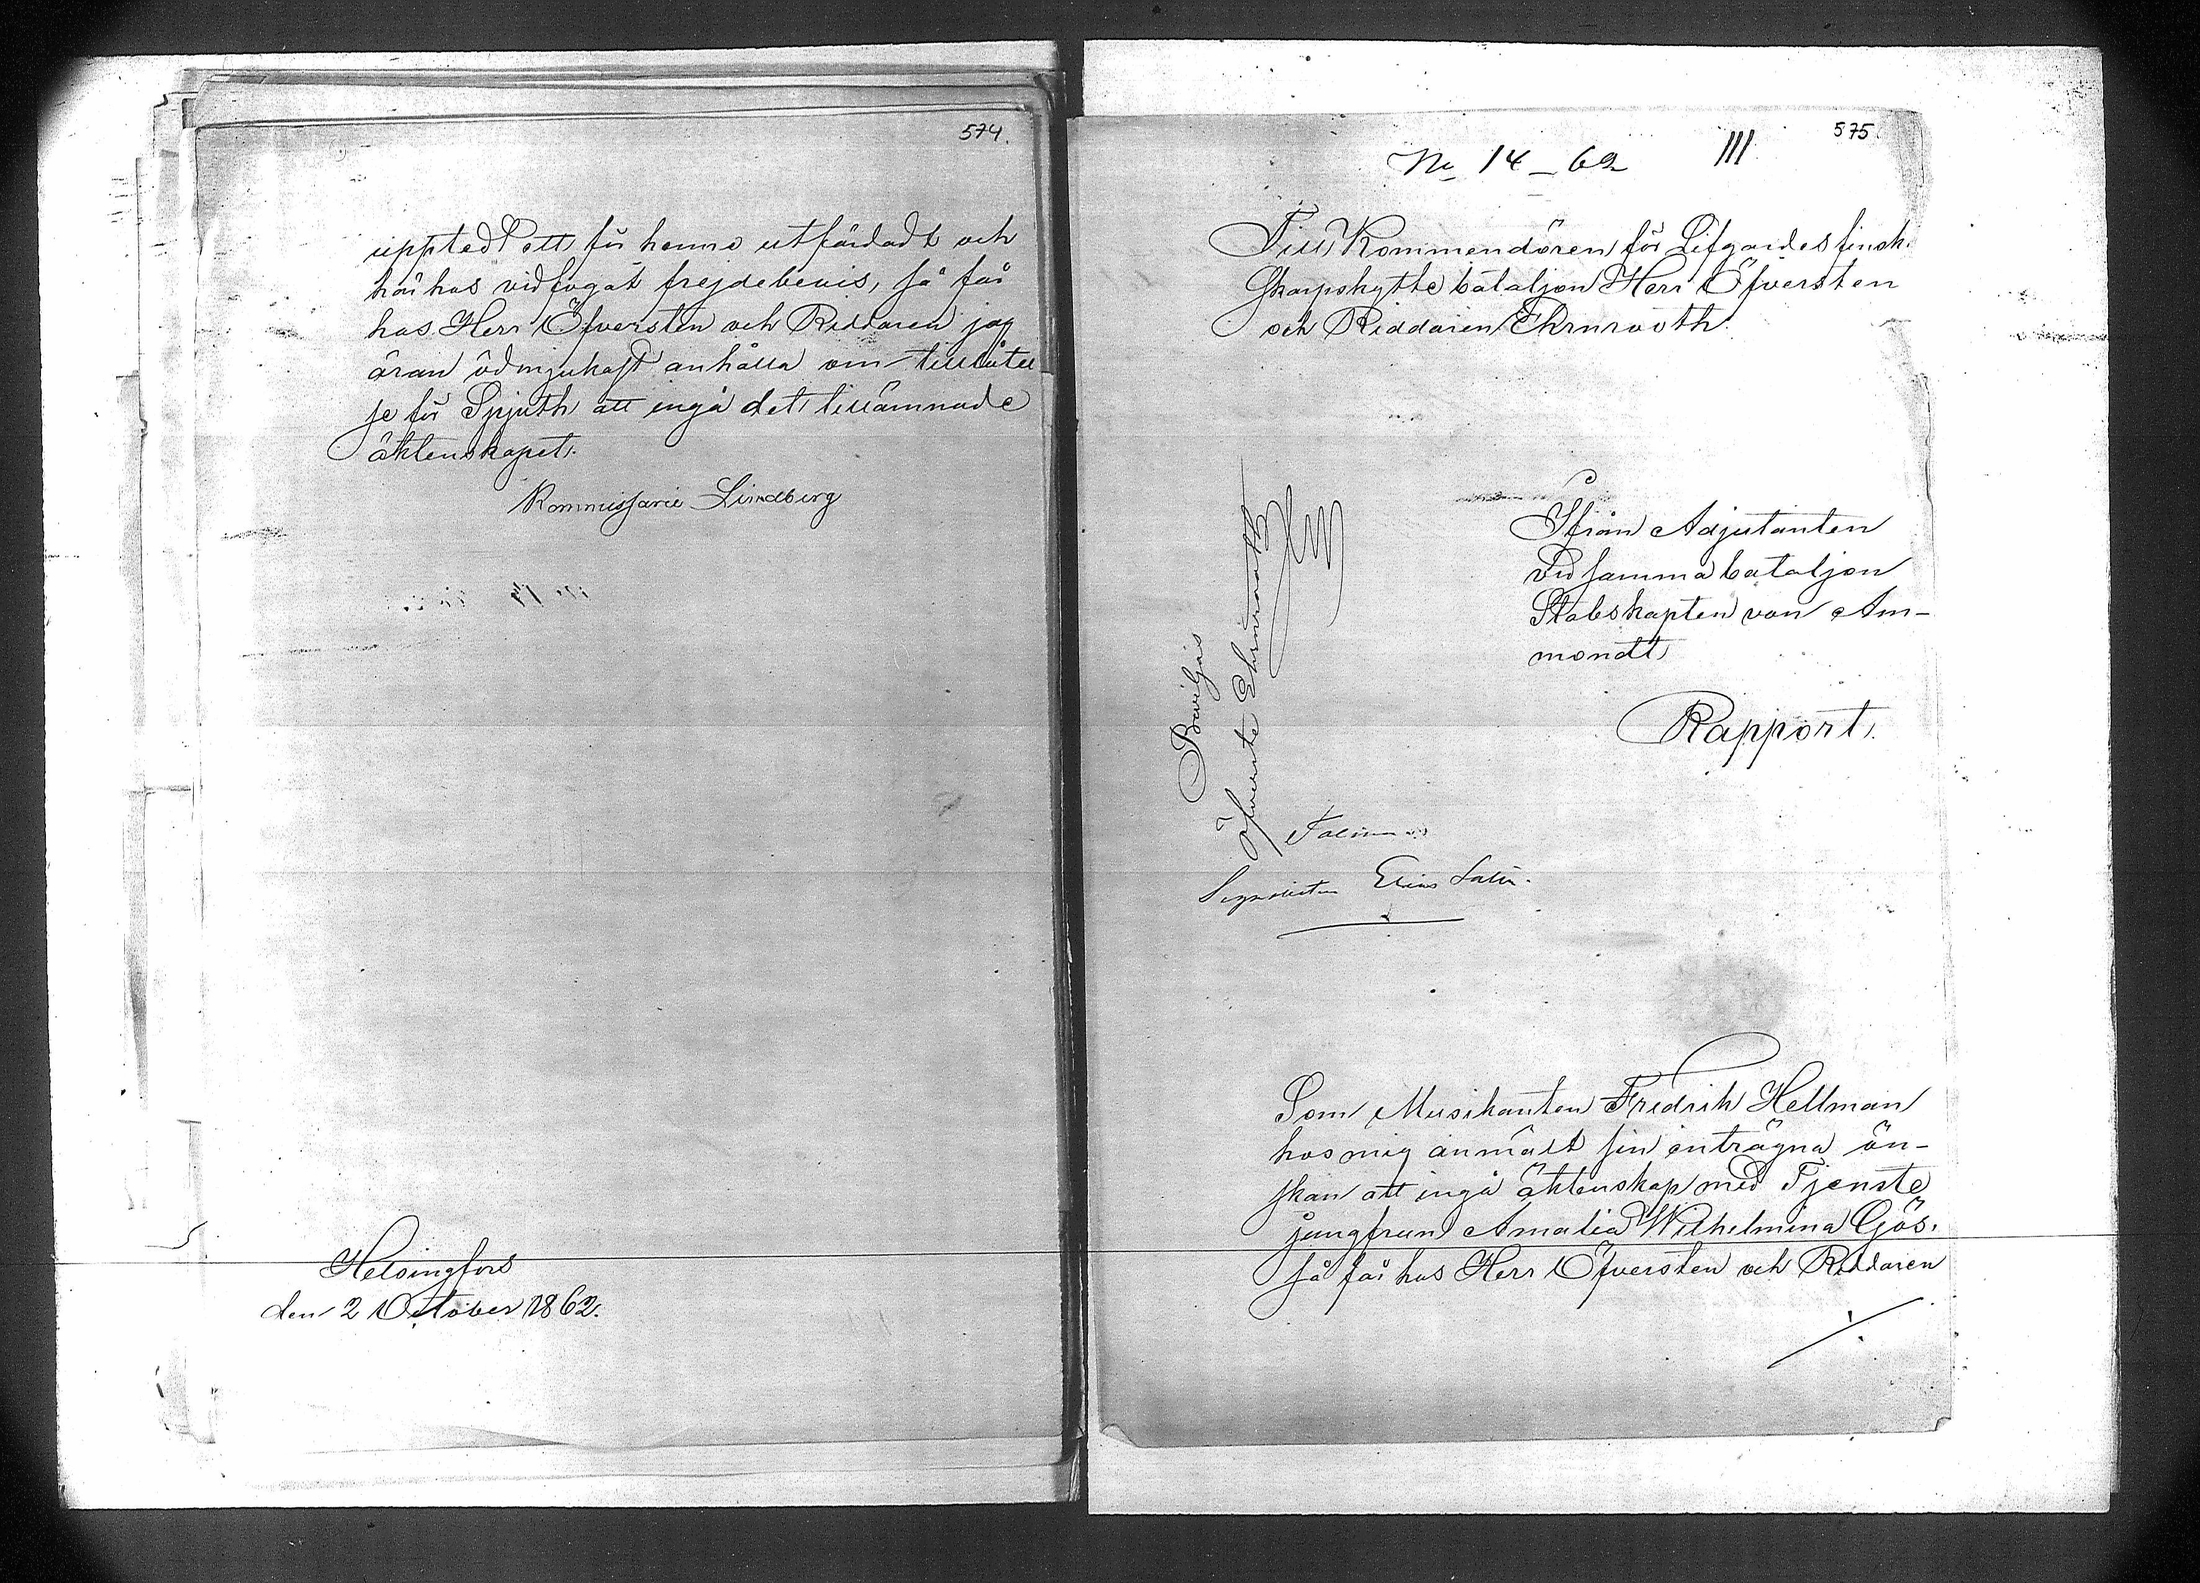 574.
upptedt ett för henne utfärdadt och
här hos vidfogat frejdebevis, så får
hos Herr Öfversten och Riddaren jag
äran ödmjukast anhålla om tillåtel
se för Spjuth att ingå det tillämnade
äktenskapet.
Kommissarie Lindberg
Helsingfors
den 2 October 1862.
575.
No 14 - 62
III
Till Kommendören för Lifgardes finska
Skarpskytte bataljon Herr Öfversten
och Riddaren Ehrnrooth.
Ifrån Adjutanten
vid samma bataljon
Stabskapten von Am-
mondt,
Rapport.
Beviljas
Öfverste Ehrnrooth
Elias
Som Musikanten Fredrik Hellman
hos mig anmält sin enträgna ön-
skan att ingå äktenskap med Tjenste
jungfrun Amalia Wilhelmina Gös.
så får hos Herr Öfversten och Riddaren
./.